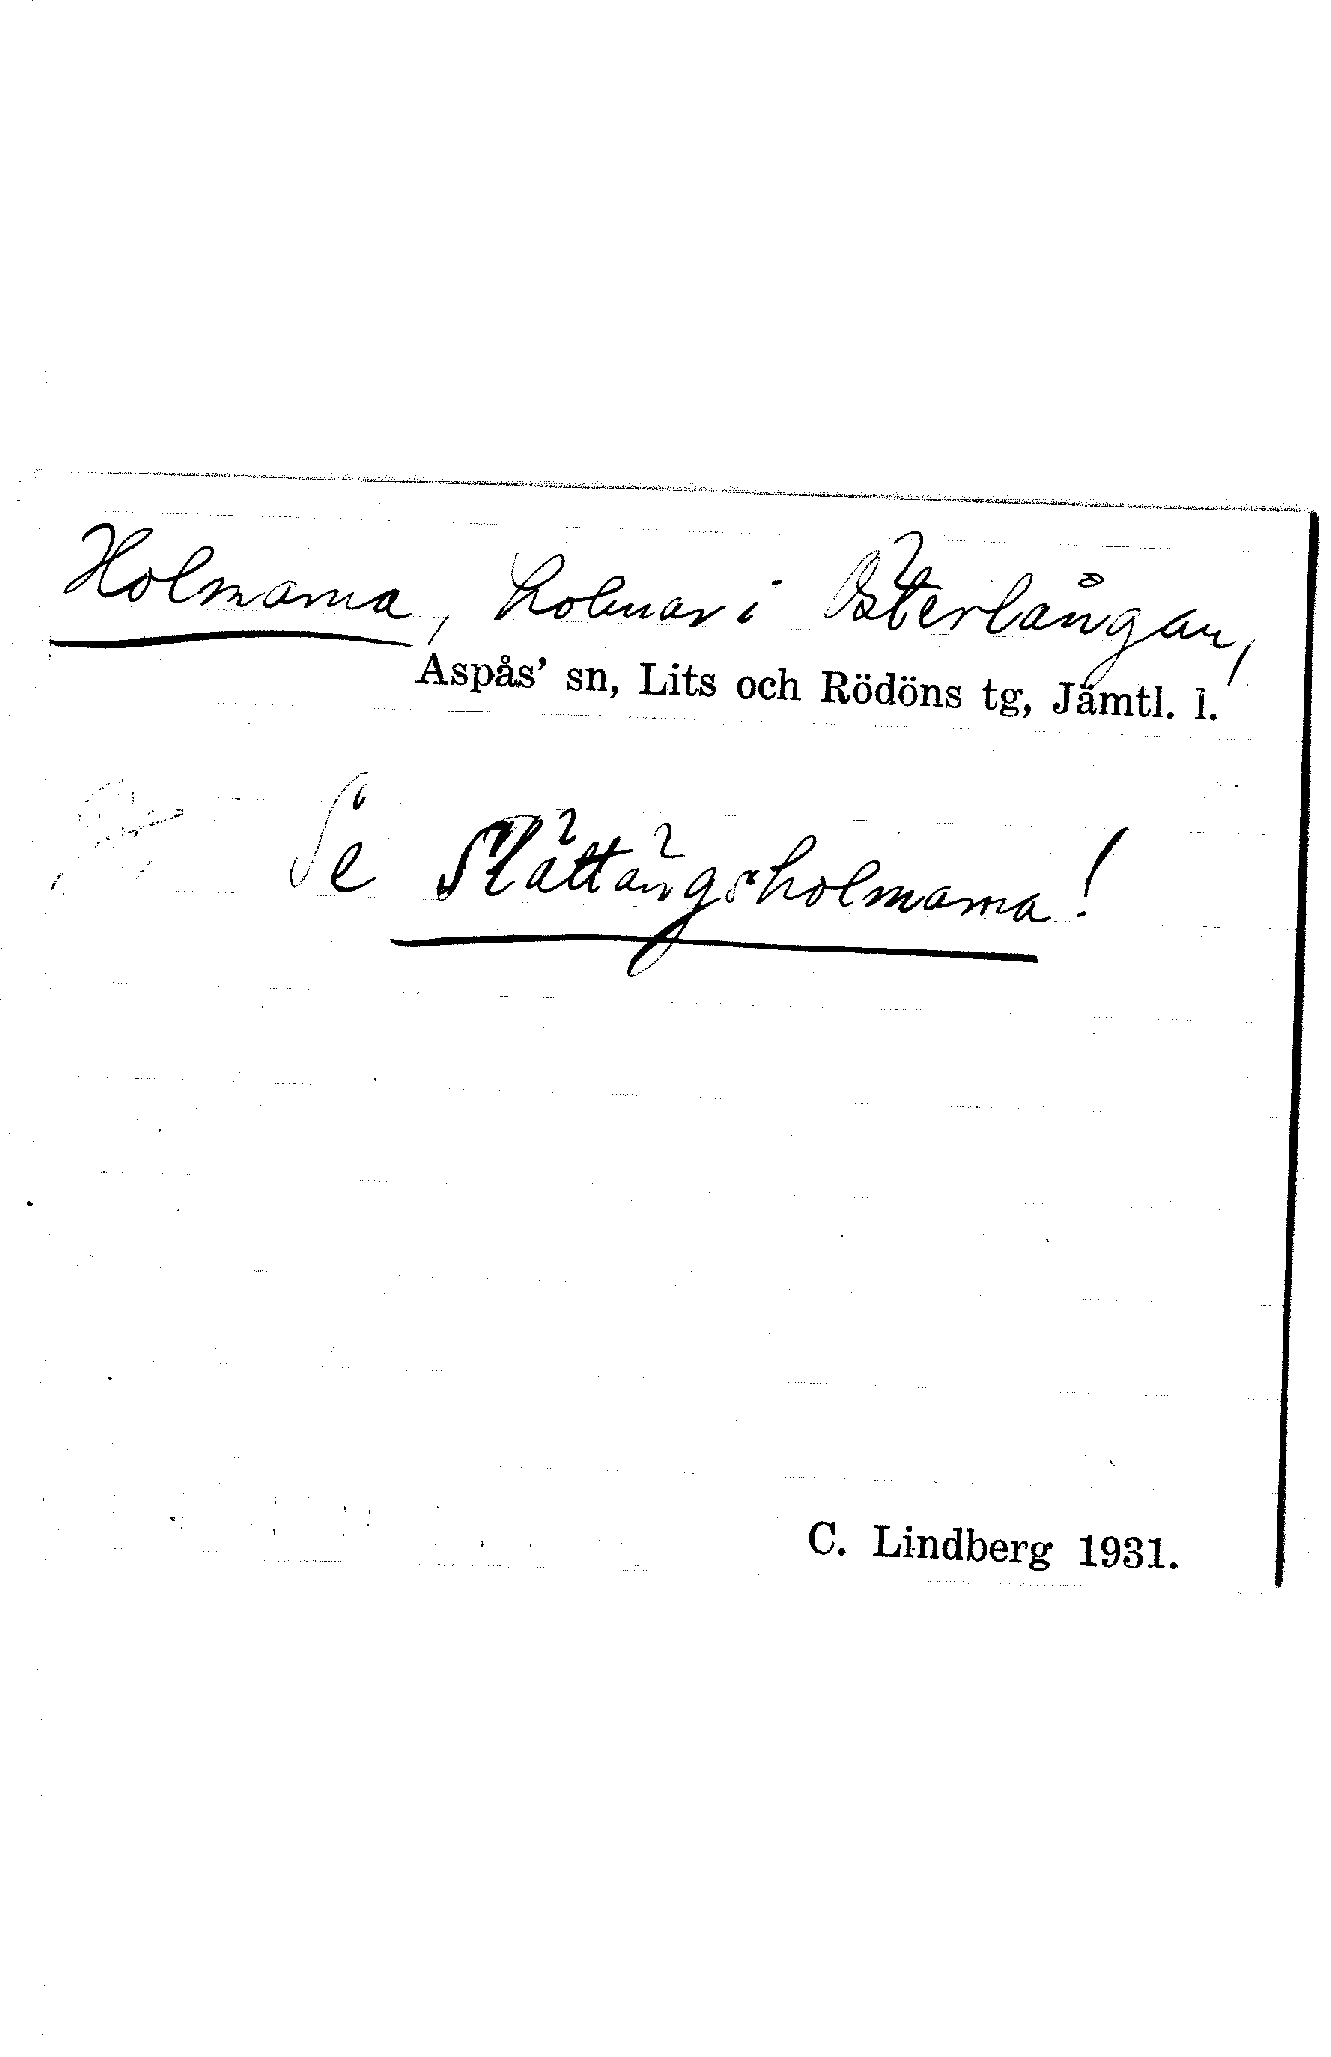 Holmarna, holmar i Österlångan,
Aspås' sn, Lits och Rödöns tg, Jämtl. l.
Se Slättängsholmarna!
C. Lindberg 1931.